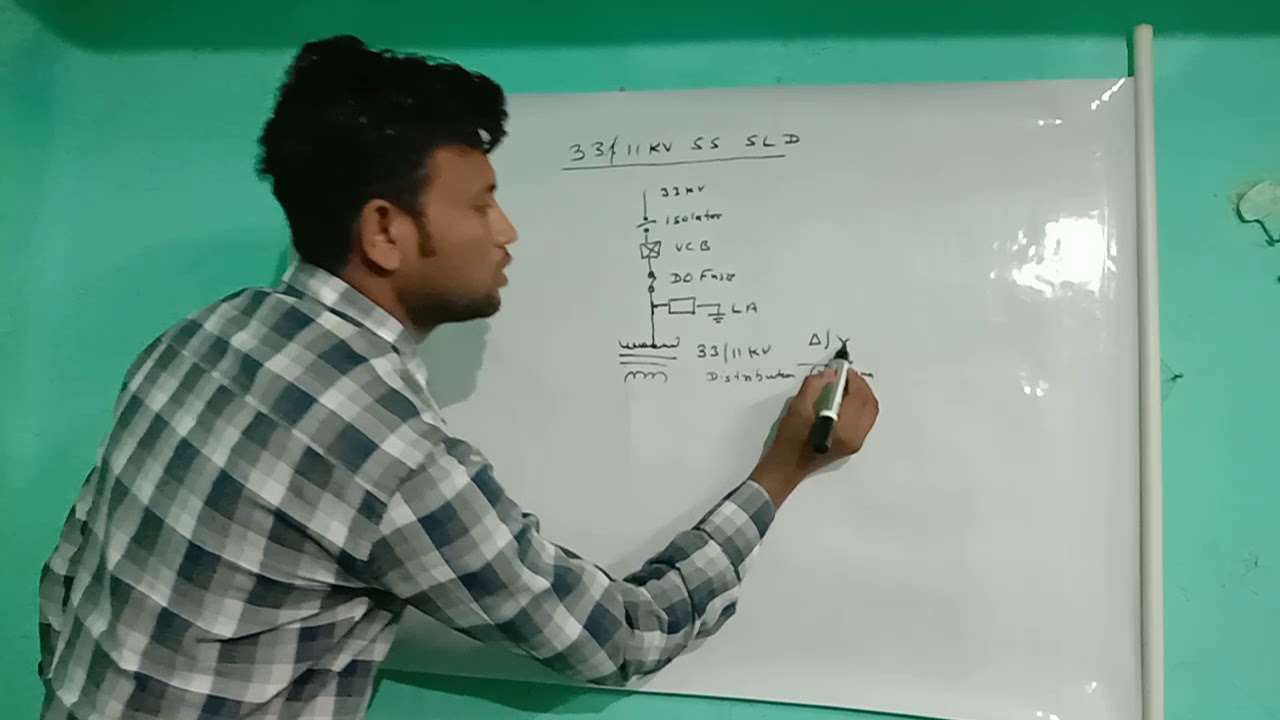 33/11KV SS SLD
33KV
isolator
VCB
DO Fuse
LA
33/11KV Δ/Y
Distribution